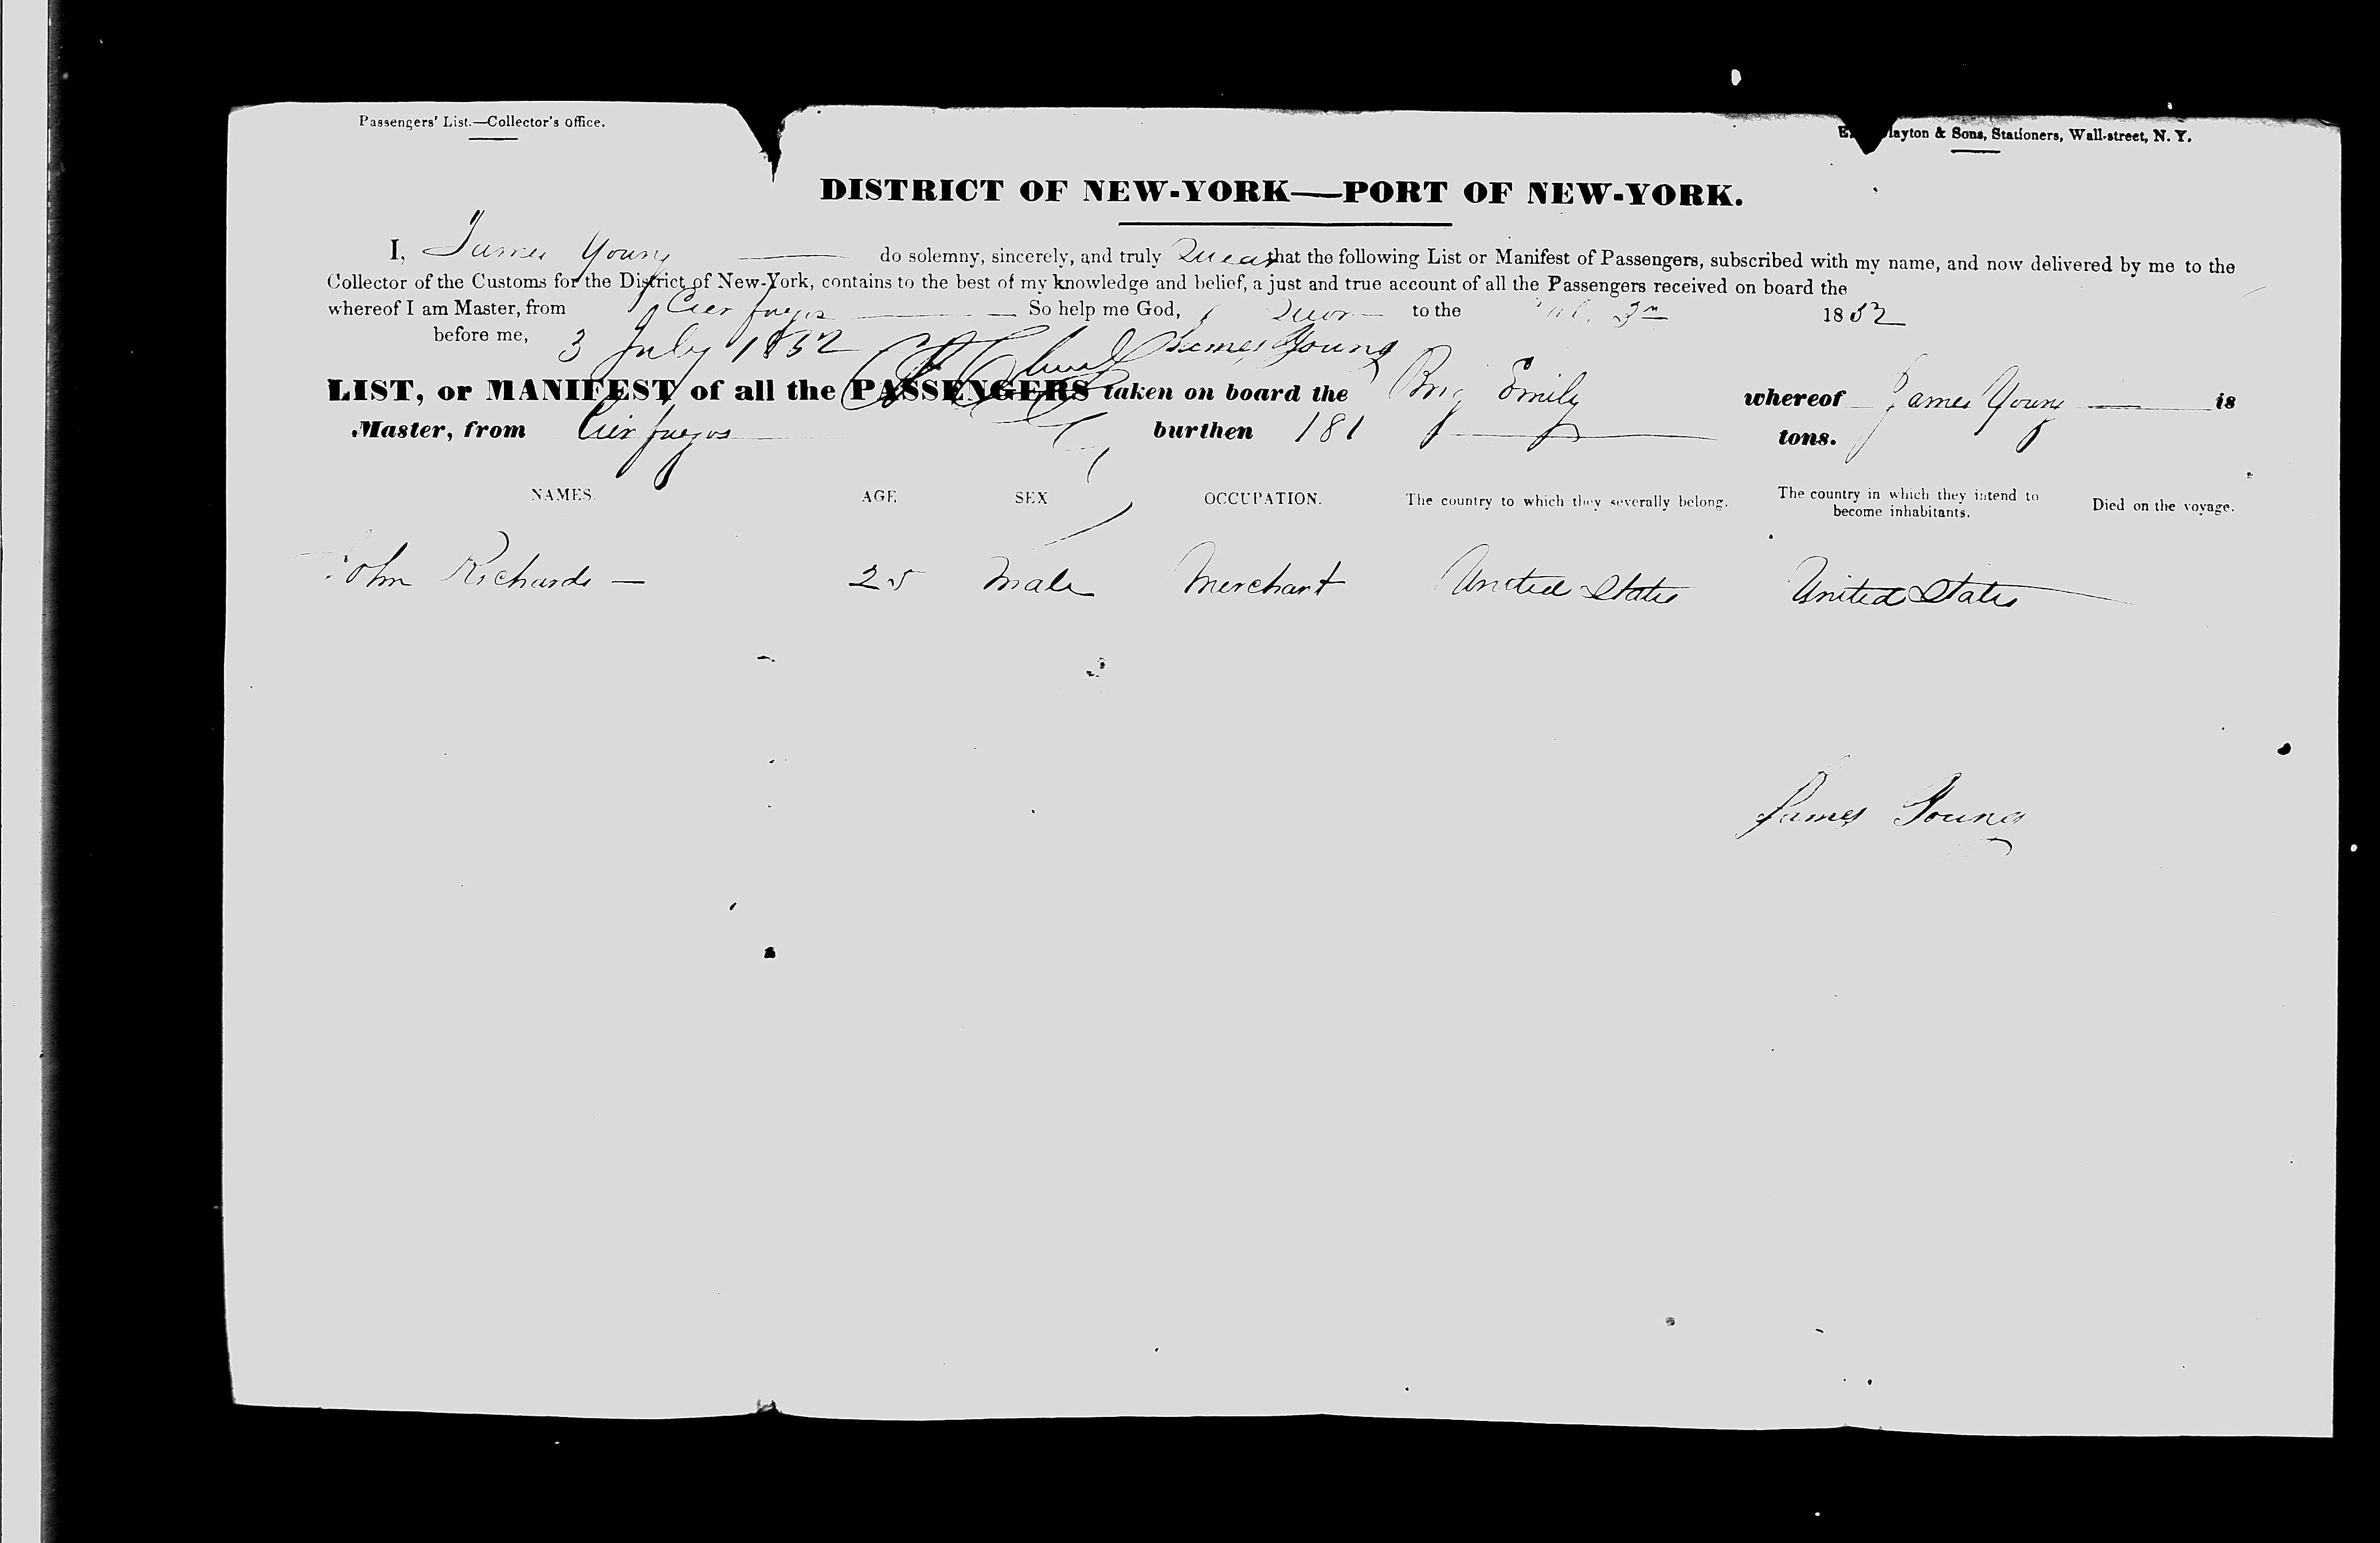 Passengers' List.—Collector's Office.
layton & Sons, Stationers, Wall-street, N. Y.
DISTRICT OF NEW-YORK—PORT OF NEW-YORK.
I, James Young do solemny, sincerely, and truly Swear that the following List or Manifest of Passengers, subscribed with my name, and now delivered by me to the
Collector of the Customs for the District of New-York, contains to the best of my knowledge and belief, a just and true account of all the Passengers received on board the
whereof I am Master, from Cienfuegos So help me God, Sworn to the 3rd 1832
before me, 3 July 1832 James Young
LIST, or MANIFEST of all the PASSENGERS taken on board the Brig Emily whereof James Young is
Master, from Cienfuegos burthen 181 tons.
NAMES. AGE SEX OCCUPATION. The country to which they severally belong. The country in which they intend to become inhabitants. Died on the voyage.
John Richards — 25 Male Merchant United States United States
James Young